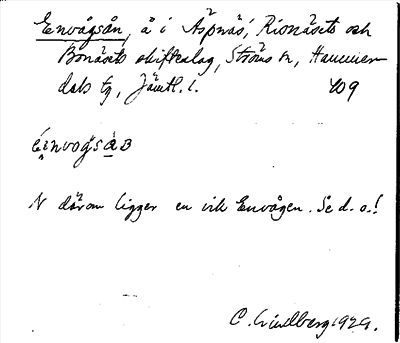 Envågsån, å i Aspnäs, Risnäsets och
Bonäsets skifteslag, Ströms sn, Hammer
dals tg, Jämtl. l. 409
N därom ligger en vik Envågen. Se d. o.!
C. Lindberg 1929.